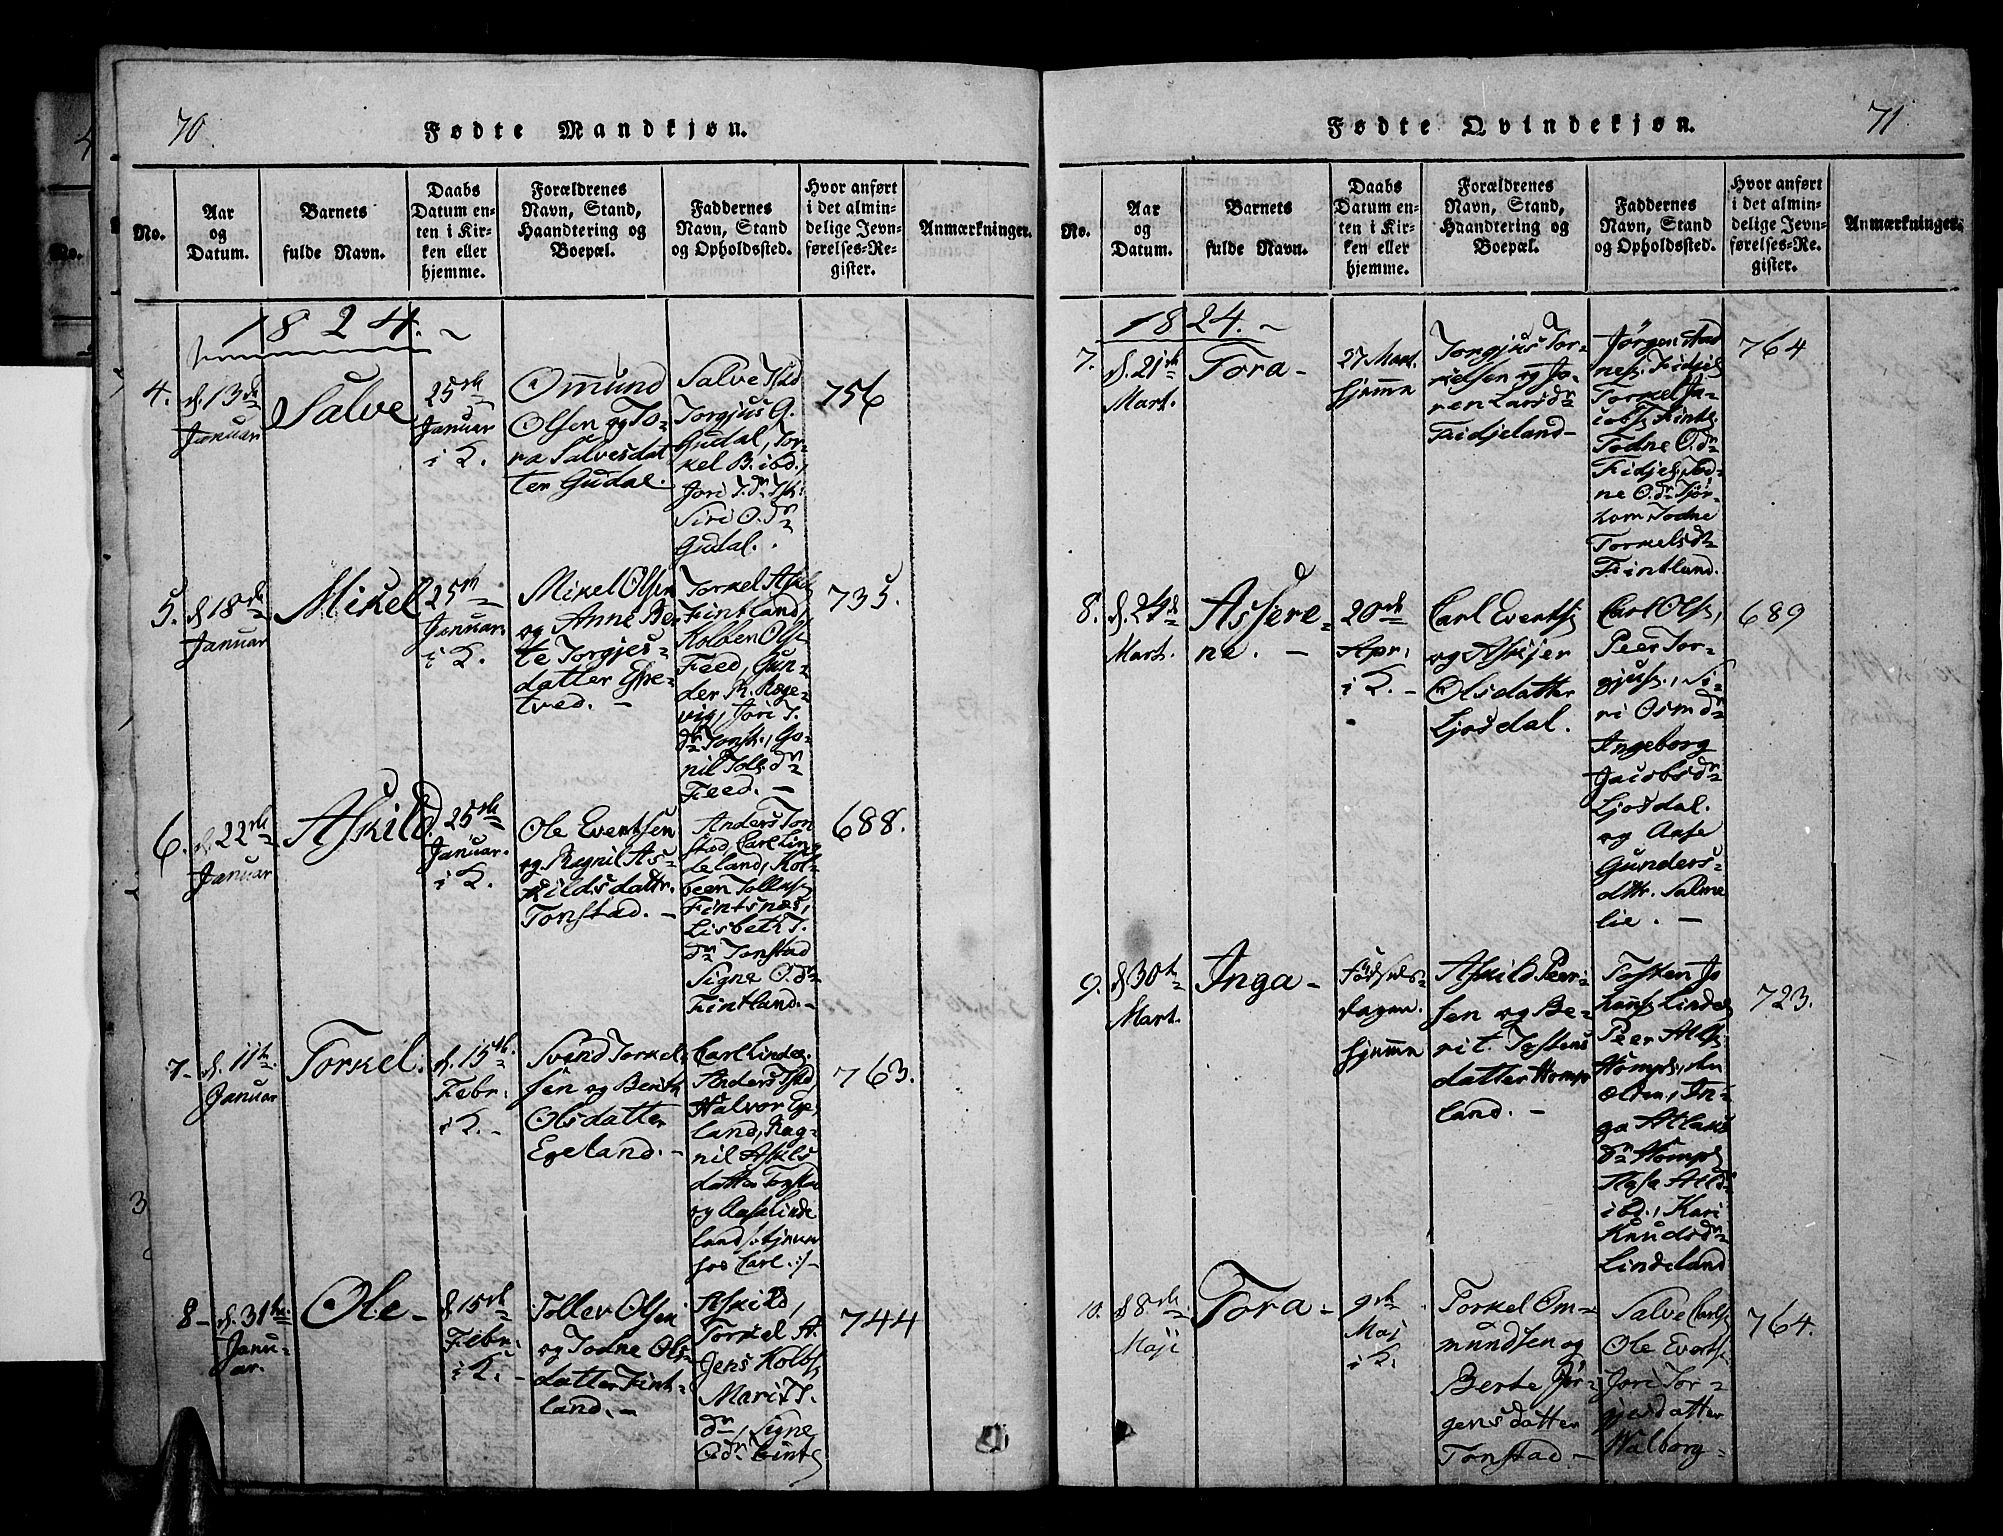 70.
Fødte Mandkjøn.
No.
Aar
og
Datum.
Barnets
fulde Navn.
Daabs
Datum en-
ten i Kir-
ken eller
hjemme.
Forældrenes
Navn, Stand,
Haandtering og
Boepæl.
Faddernes
Navn, Stand
og Opholdssted.
Hvor anført
i det almin-
delige Jevn-
førelses-Re-
gister.
Anmærkninger.
1824.
4.
d. 13de
Januar
Salve
25de
Januar
i K.
Omund
Olsen og To-
ra Salvesdat
ter Gudal.
Salve
Torgjus G.
Gudal, Tor-
kel B. ibd.,
Siri O.dr
Gudal.
756
5.
d. 18de
Januar
Mikel
25de
Januar
i K.
Mikel Olsen
og Anne Ber
te Torgjes-
datter Espe-
tved. -
Torkel
Fintland,
Kolben Ols
Feed, Gun-
der R. Røge-
vig, Jori T.
nil Toll.dr
Feed. -
735.
6.
d. 22de
Januar
Askild.
25de
Januar.
i K.
Ole Evertsen
og Ragnil As-
kildsdattr.
Tonstad. -
Anders Ton
stad, Carl Lin
deland, Kol-
been Tollefs
Fintsnæs,
Lisbeth T.
dr Tonstad
Signe O.dr
Fintland. -
688.
7-
d. 11te
Januar
Torkel.
d. 15de
Febr.
i K. -
Svend Torkel
sen og Berte
Olsdatter
Egeland. -
Carl Lindeg.
Anders
Halvor Ege
land, Rag-
nil Askils
datter Tonstad
og Aase Linde
land
hos Carl. :/-
763.
8-
d. 31te
Janu-
ar.
Ole-
d. 15de
Febr.
i K. -
Toller Olsen
og Todne Ols-
datter Fint-
land. -
Askild,
Torkel A.
Jens Kolbs
Marit T.
dr, Signe
744
71.
Fødte Qvindekjøn.
No.
Aar
og
Datum.
Barnets
fulde Navn.
Daabs
Datum en-
ten i Kir-
ken eller
hjemme.
Forældrenes
Navn, Stand,
Haandtering og
Boepæl.
Faddernes
Navn, Stand
og Opholdssted.
Hvor anført
i det almin-
delige Jevn-
førelses-Re-
gister.
Anmærkninger.
1824. -
7.
d. 21de
Mart.
Tora -
27 Mart.
hjemme
Torgjus Tor-
kelsen og Jo-
ren Larsdr
Fidjeland -
Jørgen Aad
Torkel Ja-
Todne O.dr
ne O.dr Tjør-
hom, Todne
Torkelsdr
Fintland.
764
8.
d. 24de
Mart.
Assere-
ne. -
20de
Apr.
i K. -
Carl Everts
og Askjer
Olsdatter
Ljosdal.
Carl Ols,
Peer Tor-
gjus., Si-
ri Osmdr
Ingeborg
Jacobsdr
Ljosdal.
og Aase
Gunders-
dttr. Salme
lie. -
689
9.
d. 30te
Mart.
Inga -
Fødsels-
dagen
hjemme
Askild Peer-
sen og Be-
rit Tostens
datter Homp
land. -
Tosten Jo
hans Lindel
Peer
ga Atlaks
dr Homp
ibd., Kari
Knudsdr
Lindeland
723.
10.
d. 8de
Maji
Tora -
9de
Maj
i K.
Torkel Om-
mundsen og
Berte Jør-
gensdatter
Tonstad -
Salve Carls
Ole Everts
Jori Tor-
jesdatter
Walborg -
764.